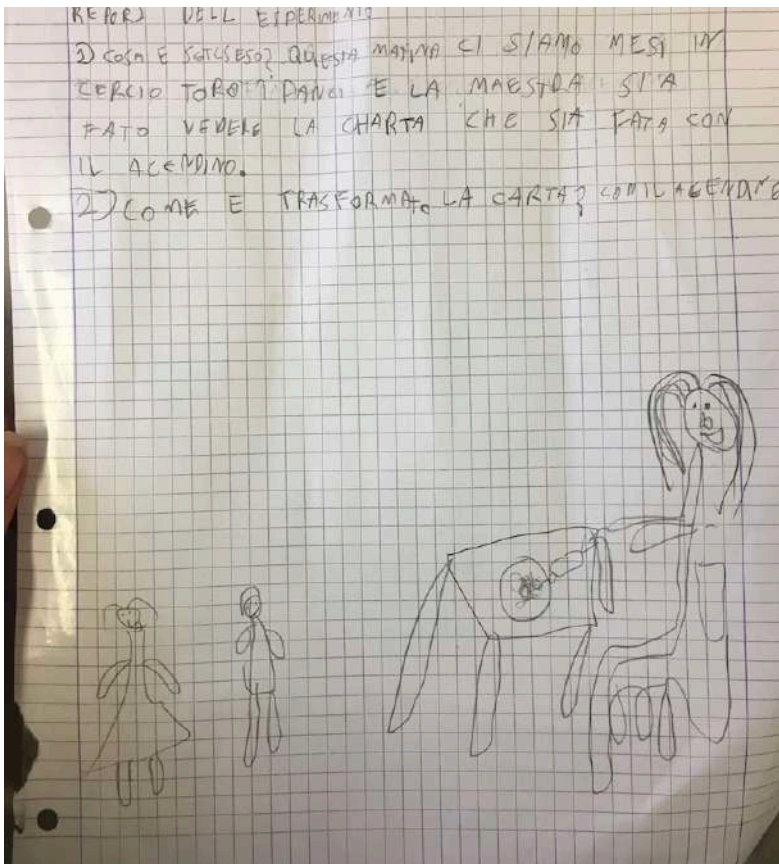 REPORS DELL ESPERIMENTO
1) COSA E SUCSESO? QUESTA MATINA CI SIAMO MESI IN
CERCIO E LA MAESTRA SIA
FATO VEDERE LA CHARTA CHE SIA FATA CON
IL ACENDINO.
2) COME E TRASFORMATO LA CARTA? CON IL ACENDINO